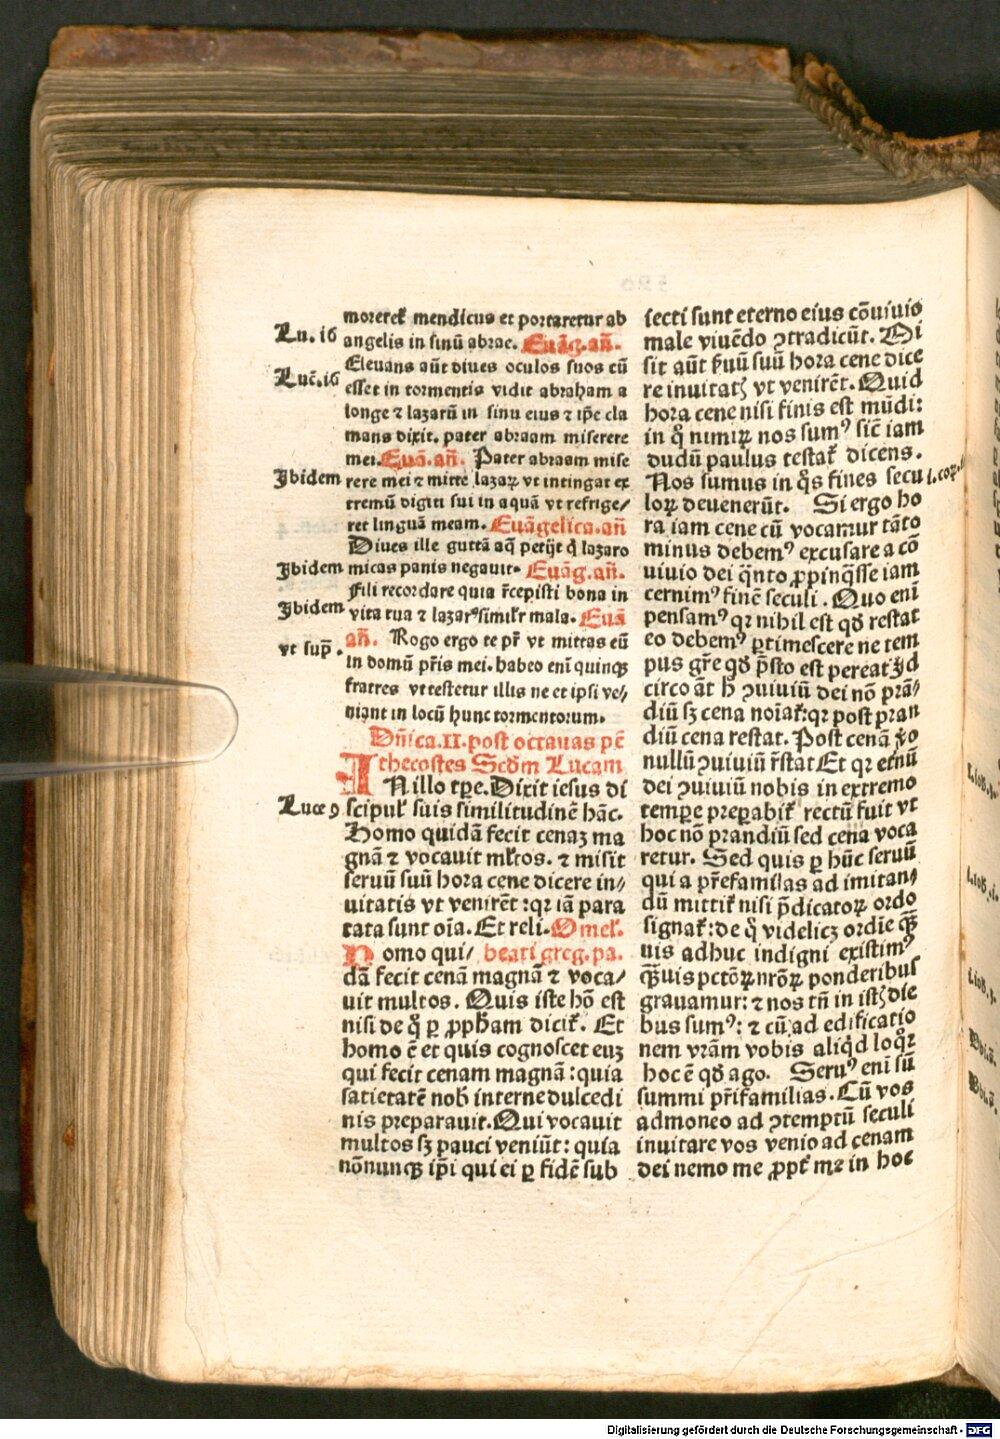 Lu. 16
Luč. 16
Jbidem
Jbidem
Jbidem
vt sup̄.
Luce 9
moreret᷑ mendicus et portaretur ab
angelis in sinū abrae. Euāg. añ.
Eleuans aūt diues oculos suos cū
esset in tormentis vidit abraham a
longe ⁊ lazarū in sinu eius ⁊ ip̄e cla
mans dixit. pater abraam miserere
mei. Euā. añ. Pater abraam mise
rere mei ⁊ mitte lazaꝝ vt intingat ex
tremū digiti sui in aquā vt refrige/
ret linguā meam. Euāgelica. añ
Diues ille guttā aq̄ petijt q̄ lazaro
micas panis negauit. Euāg. añ.
Fili recordare quia r̄cepisti bona in
vita tua ⁊ lazarꝰ simil̓r mala. Euā
añ. Rogo ergo te pr̄ vt mittas eū
in domū pr̄is mei. habeo enī quinqꝫ
fratres vt testetur illis ne et ipsi ve/
niant in locū hunc tormentorum.
Dn̄ica. II. post octauas pē
thecostes Scd̄m Lucam
IN illo tꝑe. Dixit iesus di
scipul᷑ suis similitudinē hāc.
Homo quidā fecit cenaꝫ ma
gnā ⁊ vocauit ml̓tos. ⁊ misit
seruū suū hora cene dicere in/
uitatis vt venirēt: qꝛ iā para
tata sunt oīa. Et reli. Omel᷑.
Homo qui/ beati greg. pa.
dā fecit cenā magnā ⁊ voca/
uit multos. Quis iste hō est
nisi de q̊ ꝑ ꝓph̄am dicit᷑. Et
homo ē et quis cognoscet euꝫ
qui fecit cenam magnā: quia
satietatē nob̄ interne dulcedi
nis preparauit. Qui vocauit
multos sꝫ pauci veniūt: quia
nōnunqꝫ ip̄i qui ei ꝑ fidē sub
iecti sunt eterno eius cōuiuio
male viuēdo ꝯtradicūt. Mi
sit aūt ẜuū suū hora cene dice
re inuitatꝭ vt venirēt. Quid
hora cene nisi finis est mūdi:
in q̊ nimiꝝ nos sumꝰ sic̄ iam
dudū paulus testat᷑ dicens.
Nos sumus in q̊s fines secu
loꝝ deuenerūt. Si ergo ho
ra iam cene cū vocamur tāto
minus debemꝰ excusare a cō
uiuio dei q̄nto ꝓpinq̄sse iam
cernimꝰ finē seculi. Quo enī
pensamꝰ qꝛ nihil est qđ restat
eo debemꝰ ꝑtimescere ne tem
pus gr̄e qđ p̄sto est pereat Jd
circo āt h̄ ꝯuiuiū dei nō prā/
diū sꝫ cena noīat᷑: qꝛ post pran
diū cena restat. Post cenā v̊o
nullū ꝯuiuiū r̄stat Et qꝛ et̓nū
dei ꝯuiuiū nobis in extremo
tempꝑe preꝑabit᷑ rectū fuit vt
hoc nō prandiū sed cena voca
retur. Sed quis ꝑ hūc seruū
qui a pr̄efamilas ad imitan/
dū mittit᷑ nisi p̄dicatoꝝ ordo
signat᷑: de q̊ videlicꝫ ordīe qꝫ
uis adhuc indigni existimꝰ
qꝫuis pctōꝝ nr̄oꝝ ponderibus
grauamur: ⁊ nos tn̄ in istꝭ die
bus sumꝰ: ⁊ cū ad edificatio
nem vr̄am vobis aliq̇d loq̊r
hoc ē qđ ago. Seruꝰ enī sū
summi pr̄ifamilias. Cū vos
admoneo ad ꝯtemptū seculi
inuitare vos venio ad cenam
dei nemo me ꝓpt᷑ me in hoc
1. cor.
Digitalisierung gefördert durch die Deutsche Forschungsgemeinschaft - DFG